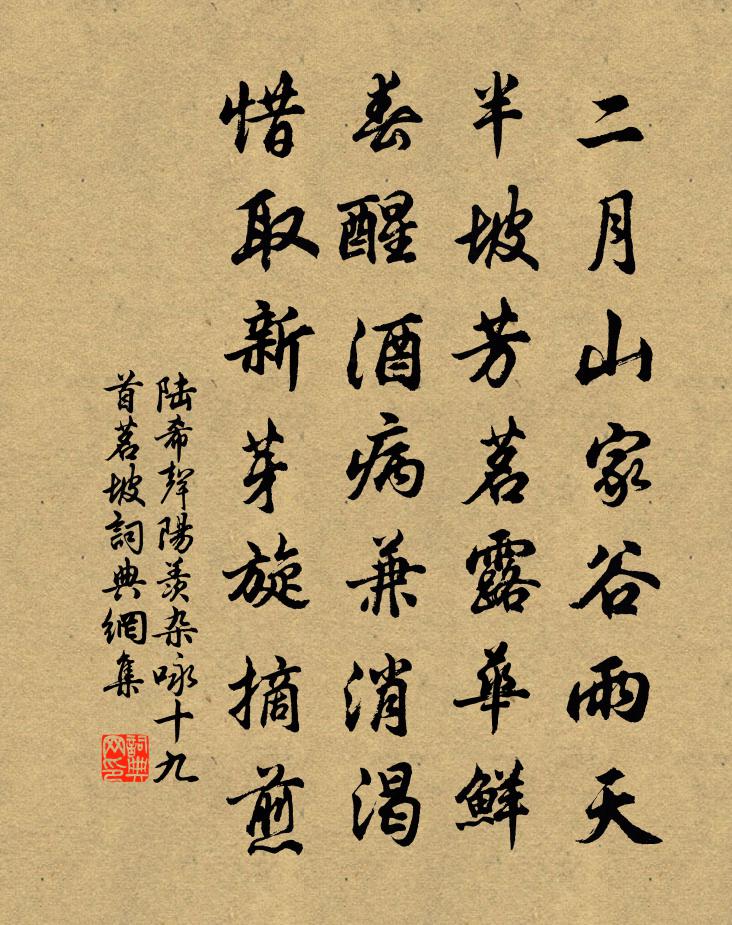 二月山家谷雨天
半坡芳茗露華鮮
春醒酒病兼消渴
惜取新芽旋摘煎
陆希聲陽羨杂咏十九
首茗坡詞典網集
詞典
网印